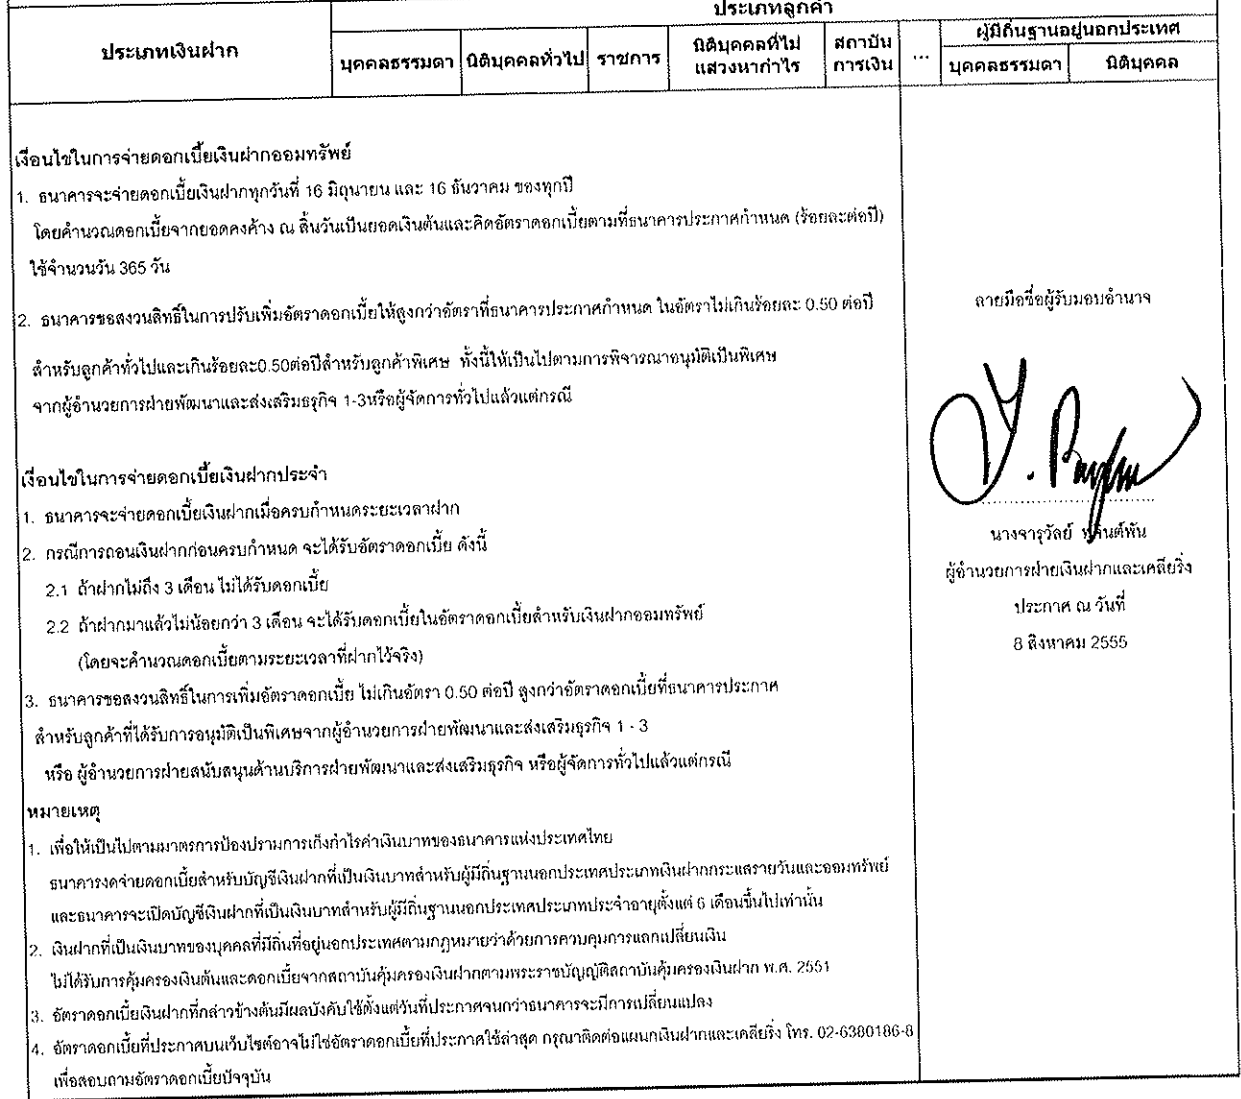 ประเภทลูกค้า
ประเภทเงินฝาก
บุคคลธรรมดา
นิติบุคคลทั่วไป
ราชการ
นิติบุคคลที่ไม่
แสวงหากำไร
สถาบัน
การเงิน
...
ผู้มีถิ่นฐานอยู่นอกประเทศ
บุคคลธรรมดา
นิติบุคคล
เงื่อนไขในการจ่ายดอกเบี้ยเงินฝากออมทรัพย์
1. ธนาคารจะจ่ายดอกเบี้ยเงินฝากทุกวันที่ 16 มิถุนายน และ 16 ธันวาคม ของทุกปี
โดยคำนวณดอกเบี้ยจากยอดคงค้าง ณ สิ้นวันเป็นยอดเงินต้นและคิดอัตราดอกเบี้ยตามที่ธนาคารประกาศกำหนด (ร้อยละต่อปี)
ใช้จำนวนวัน 365 วัน
2. ธนาคารขอสงวนสิทธิ์ในการปรับเพิ่มอัตราดอกเบี้ยให้สูงกว่าอัตราที่ธนาคารประกาศกำหนด ในอัตราไม่เกินร้อยละ 0.50 ต่อปี
สำหรับลูกค้าทั่วไปและเกินร้อยละ0.50ต่อปีสำหรับลูกค้าพิเศษ ทั้งนี้ให้เป็นไปตามการพิจารณาอนุมัติเป็นพิเศษ
จากผู้อำนวยการฝ่ายพัฒนาและส่งเสริมธรุกิจ 1-3หรือผู้จัดการทั่วไปแล้วแต่กรณี
เงื่อนไขในการจ่ายดอกเบี้ยเงินฝากประจำ
1. ธนาคารจะจ่ายดอกเบี้ยเงินฝากเมื่อครบกำหนดระยะเวลาฝาก
2. กรณีการถอนเงินฝากก่อนครบกำหนด จะได้รับอัตราดอกเบี้ย ดังนี้
2.1 ถ้าฝากไม่ถึง 3 เดือน ไม่ได้รับดอกเบี้ย
2.2 ถ้าฝากมาแล้วไม่น้อยกว่า 3 เดือน จะได้รับดอกเบี้ยในอัตราดอกเบี้ยสำหรับเงินฝากออมทรัพย์
(โดยจะคำนวณดอกเบี้ยตามระยะเวลาที่ฝากไว้จริง)
3. ธนาคารขอสงวนสิทธิ์ในการเพิ่มอัตราดอกเบี้ย ไม่เกินอัตรา 0.50 ต่อปี สูงกว่าอัตราดอกเบี้ยที่ธนาคารประกาศ
สำหรับลูกค้าที่ได้รับการอนุมัติเป็นพิเศษจากผู้อำนวยการฝ่ายพัฒนาและส่งเสริมธุรกิจ 1 - 3
หรือ ผู้อำนวยการฝ่ายสนับสนุนด้านบริการฝ่ายพัฒนาและส่งเสริมธุรกิจ หรือผู้จัดการทั่วไปแล้วแต่กรณี
หมายเหตุ
1. เพื่อให้เป็นไปตามมาตรการป้องปรามการเก็งกำไรค่าเงินบาทของธนาคารแห่งประเทศไทย
ธนาคารงดจ่ายดอกเบี้ยสำหรับบัญชีเงินฝากที่เป็นเงินบาทสำหรับผู้มีถิ่นฐานนอกประเทศประเภทเงินฝากกระแสรายวันและออมทรัพย์
และธนาคารจะเปิดบัญชีเงินฝากที่เป็นเงินบาทสำหรับผู้มีถิ่นฐานนอกประเทศประเภทประจำอายุตั้งแต่ 6 เดือนขึ้นไปเท่านั้น
2. เงินฝากที่เป็นเงินบาทของบุคคลที่มีถิ่นที่อยู่นอกประเทศตามกฎหมายว่าด้วยการควบคุมการแลกเปลี่ยนเงิน
ไม่ได้รับการคุ้มครองเงินต้นและดอกเบี้ยจากสถาบันคุ้มครองเงินฝากตามพระราชบัญญัติสถาบันคุ้มครองเงินฝาก พ.ศ. 2551
3. อัตราดอกเบี้ยเงินฝากที่กล่าวข้างต้นมีผลบังคับใช้ตั้งแต่วันที่ประกาศจนกว่าธนาคารจะมีการเปลี่ยนแปลง
4. อัตราดอกเบี้ยที่ประกาศบนเว็บไซต์อาจไม่ใช่อัตราดอกเบี้ยที่ประกาศใช้ล่าสุด กรุณาติดต่อแผนกเงินฝากและเคลียริ่ง โทร. 02-6380186-8
เพื่อสอบถามอัตราดอกเบี้ยปัจจุบัน
ลายมือชื่อผู้รับมอบอำนาจ
นางจารุวัลย์
ผู้อำนวยการฝ่ายเงินฝากและเคลียริ่ง
ประกาศ ณ วันที่
8 สิงหาคม 2555